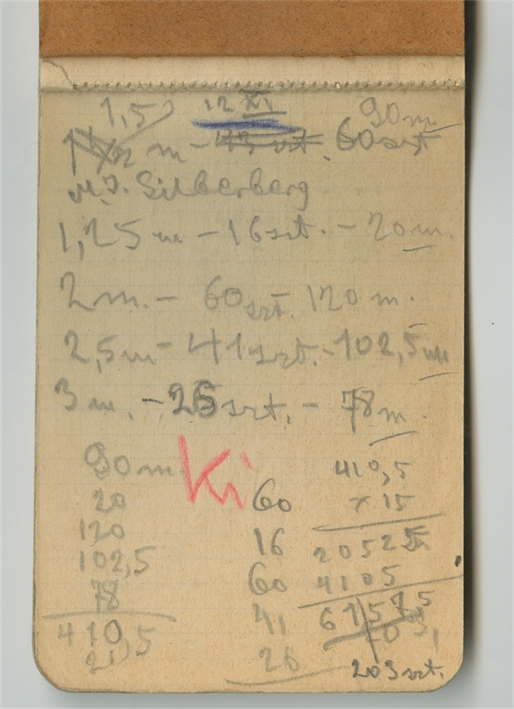 1,5 12 XI 90 m
m - 60 szt
M. J. Silberberg
1,25 m - 16 szt. - 20 m.
2 m. - 60 szt. 120 m.
2,5 m - 41 szt. - 102,5 m
3 m. - 26 szt. - 78 m.
90 m Ki 410,5
20 60 x 15
120 16 20525
102,5 60 4105
78 41 6157,5
410,5 26
203 szt.